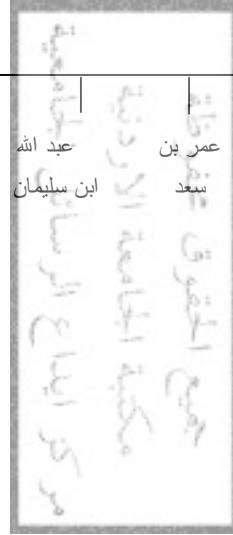 عمر بن
سعد
عبد الله
ابن سليمان
جميع الحقوق محفوظة
مكتبة الجامعة الاردنية
مركز ايداع الرسائل الجامعية